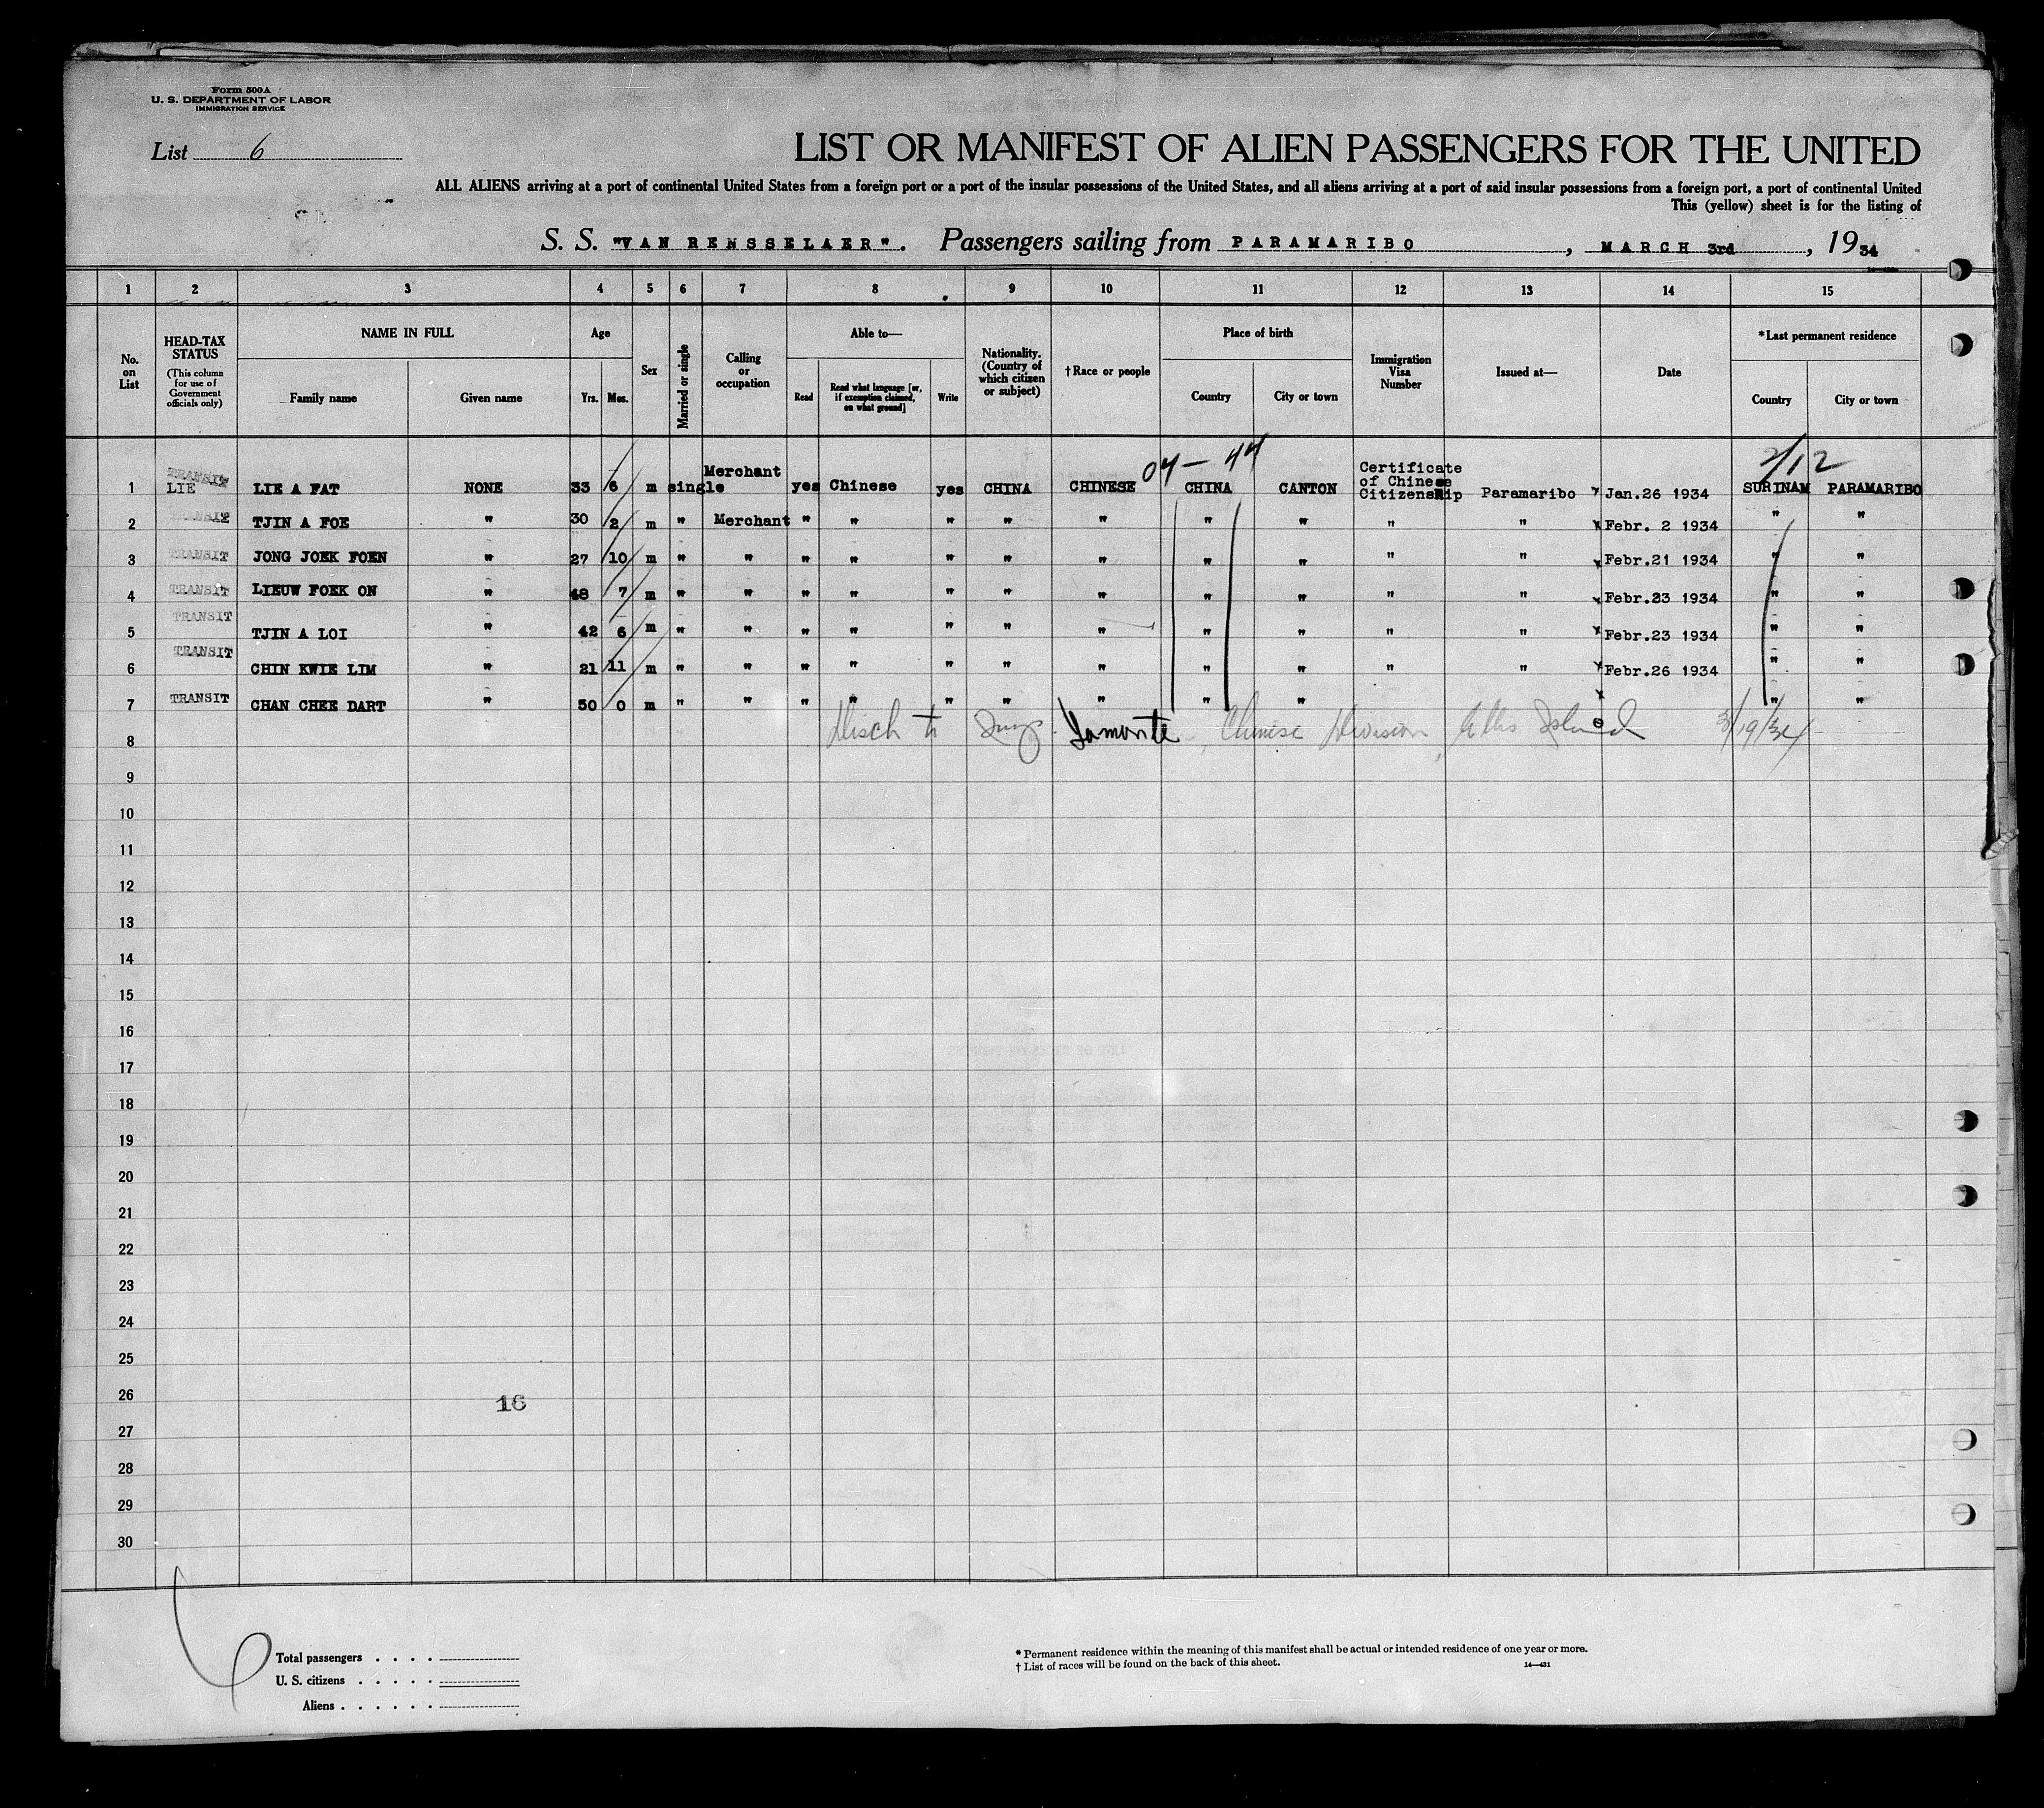 Form 500A
U. S. DEPARTMENT OF LABOR
IMMIGRATION SERVICE
List 6
LIST OR MANIFEST OF ALIEN PASSENGERS FOR THE UNITED
ALL ALIENS arriving at a port of continental United States from a foreign port or a port of the insular possessions of the United States, and all aliens arriving at a port of said insular possessions from a foreign port, a port of continental United
This (yellow) sheet is for the listing of
S. S. "VAN RENSSELAER". Passengers sailing from PARAMARIBO, MARCH 3rd, 1934
1 2 3 4 5 6 7 8 9 10 11 12 13 14 15
No. on List
HEAD-TAX STATUS (This column for use of Government officials only)
NAME IN FULL
Family name Given name
Age
Yrs. Mos.
Sex
Married or single
Calling or occupation
Able to—
Read Read what language [or, if exemption claimed, on what ground] Write
Nationality. (Country of which citizen or subject)
†Race or people
Place of birth
Country City or town
Immigration Visa Number
Issued at—
Date
*Last permanent residence
Country City or town
04-44 2/12
1 TRANSIT LIE LIE A FAT NONE 33 6 m single Merchant yes Chinese yes CHINA CHINESE CHINA CANTON Certificate of Chinese Citizenship Paramaribo Jan.26 1934 SURINAM PARAMARIBO
2 TRANSIT TJIN A FOE " 30 2 m " Merchant " " " " " " " " " Febr. 2 1934 " "
3 TRANSIT JONG JOEK FOEN " 27 10 m " " " " " " " " " " " Febr.21 1934 " "
4 TRANSIT LIEUW FOEK ON " 48 7 m " " " " " " " " " " " Febr.23 1934 " "
5 TRANSIT TJIN A LOI " 42 6 m " " " " " " " " " " " Febr.23 1934 " "
6 TRANSIT CHIN KWIE LIM " 21 11 m " " " " " " " " " " " Febr.26 1934 " "
7 TRANSIT CHAN CHEE DART " 50 0 m " " " " " " " " " " "
Disch to Insp. Lamonte, Chinese Division, Ellis Island 3/19/34
8
9
10
11
12
13
14
15
16
17
18
19
20
21
22
23
24
25
26
16
27
28
29
30
Total passengers . . . .
U. S. citizens . . . . .
Aliens . . . . . .
* Permanent residence within the meaning of this manifest shall be actual or intended residence of one year or more.
† List of races will be found on the back of this sheet. 14—431